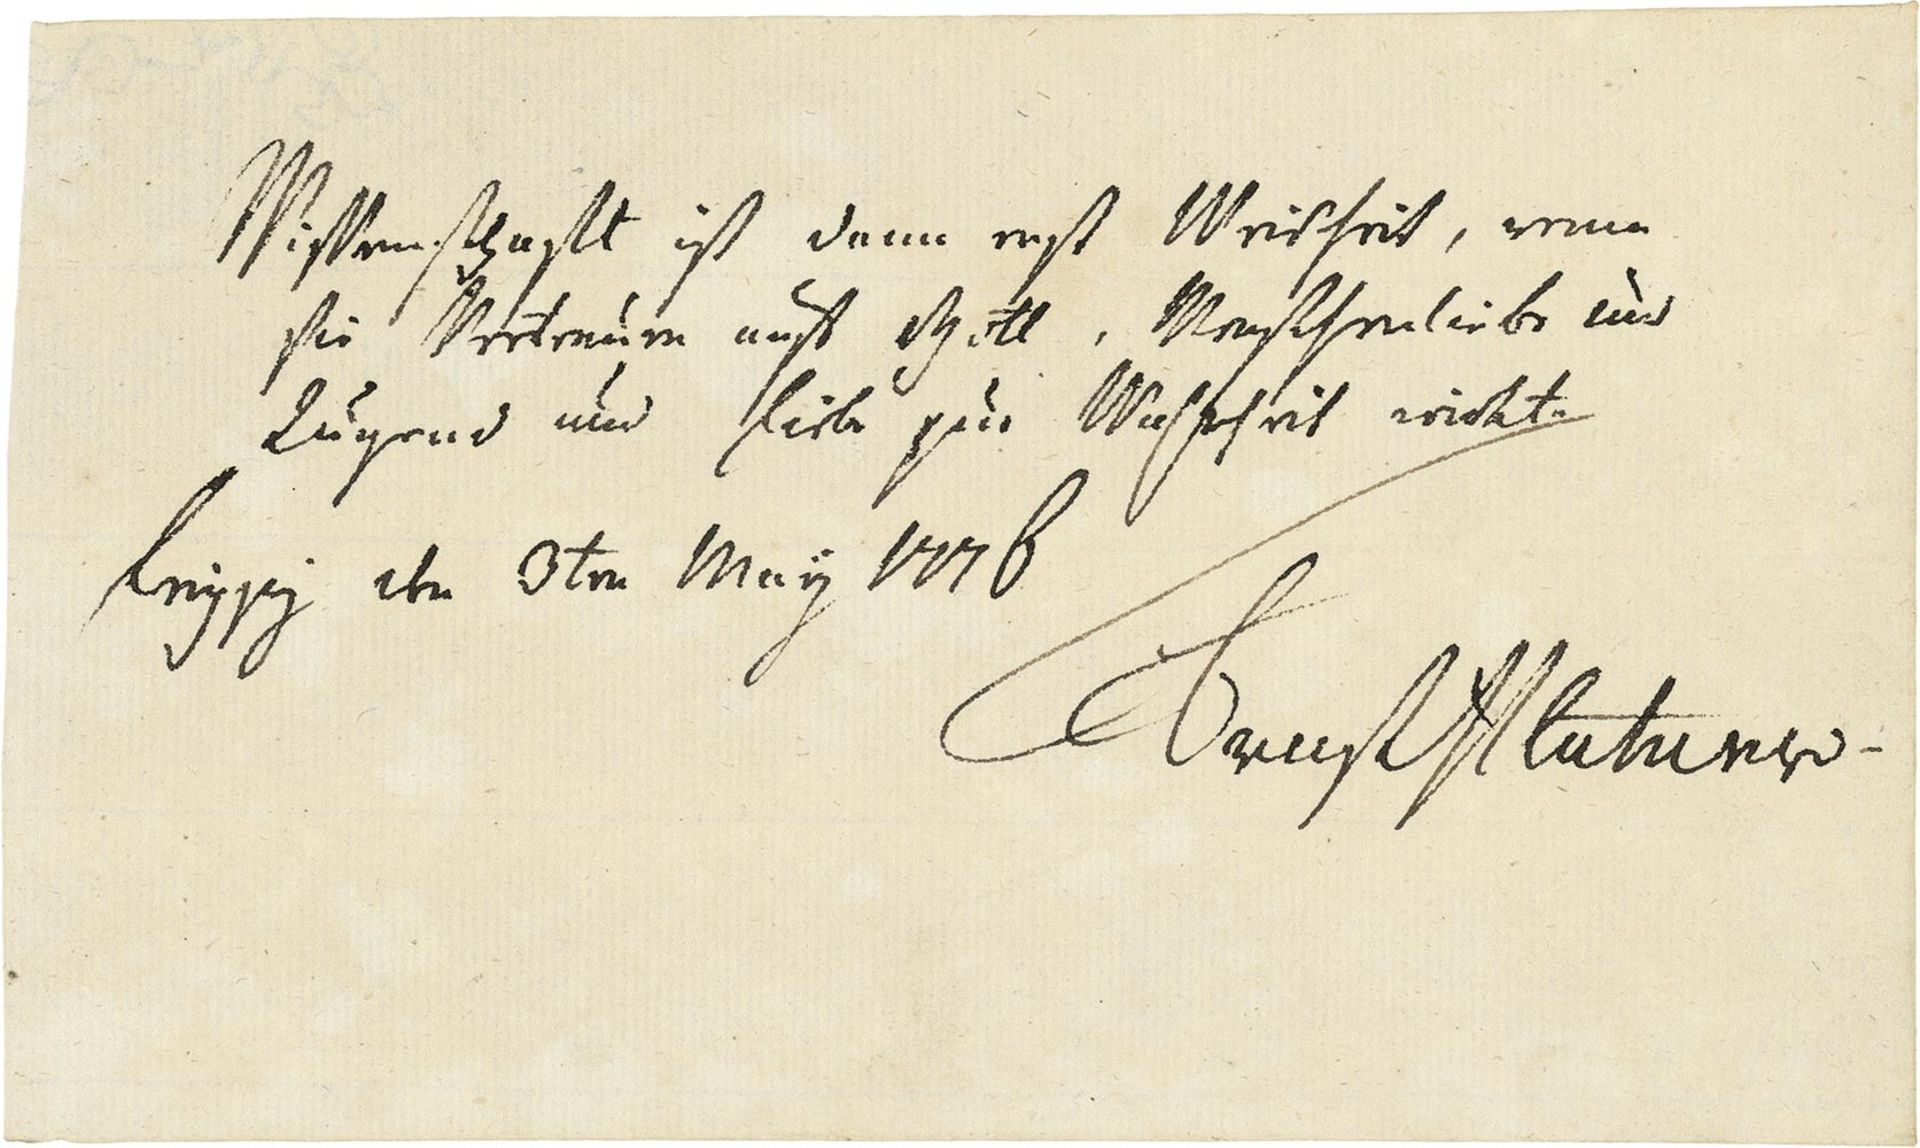 Wissenschaft ist dann erst Weisheit, wenn
sie Vertrauen auf Gott, Menschenliebe und
Tugend und Liebe zur Wahrheit wirkt.
Leipzig den 3ten May 1776
Ernst Platner